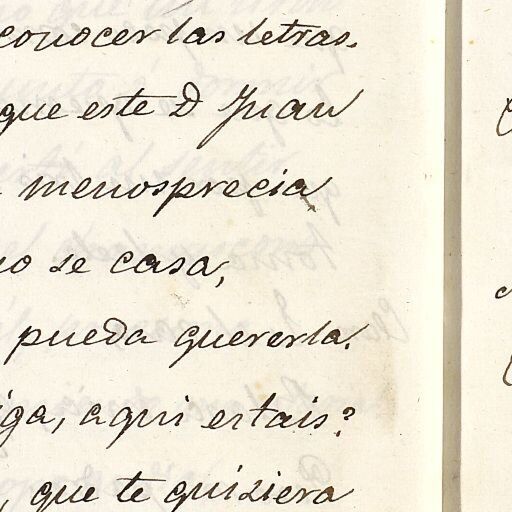 conocer las letras.
que este D Juan
menosprecia
no se casa,
pueda quererla.
iga, aqui estais?
, que te quiziera